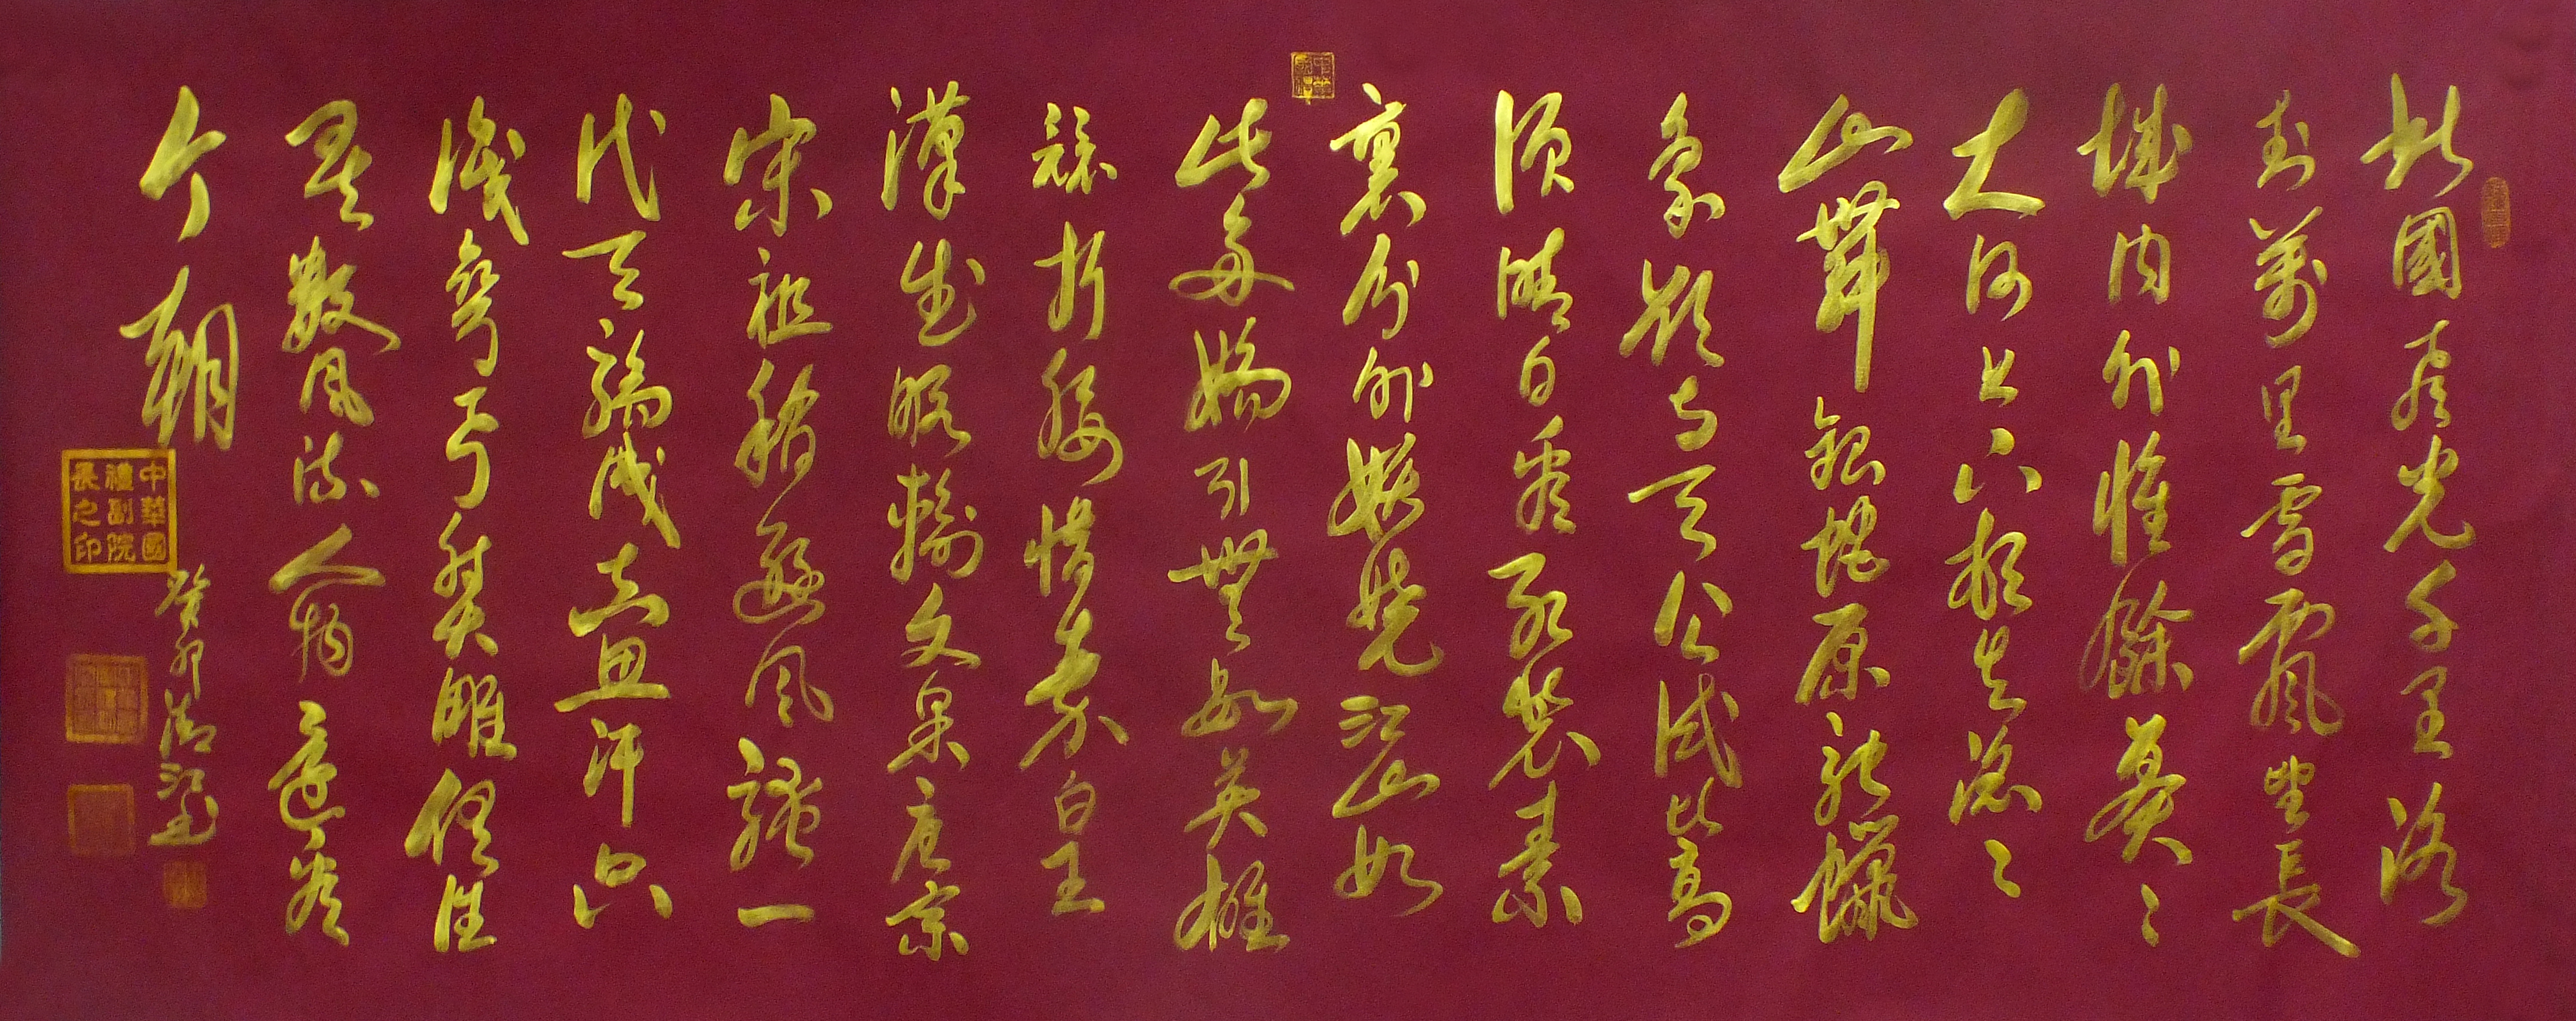 北國風光千里冰
封萬里雪飄望長
城内外惟餘莽々
大河上下頓失滔々
山舞銀蛇原馳蠟
象欲与天公試比高
須晴日看紅裝素
裹分外妖嬈江山如
此多嬌引無數英雄
競折腰惜秦皇
漢武略輸文采唐宗
宋祖稍遜風騷一
代天驕成吉思汗只
識彎弓射大雕俱往
矣數風流人物還看
今朝
癸卯
中華國
禮副院
長之印